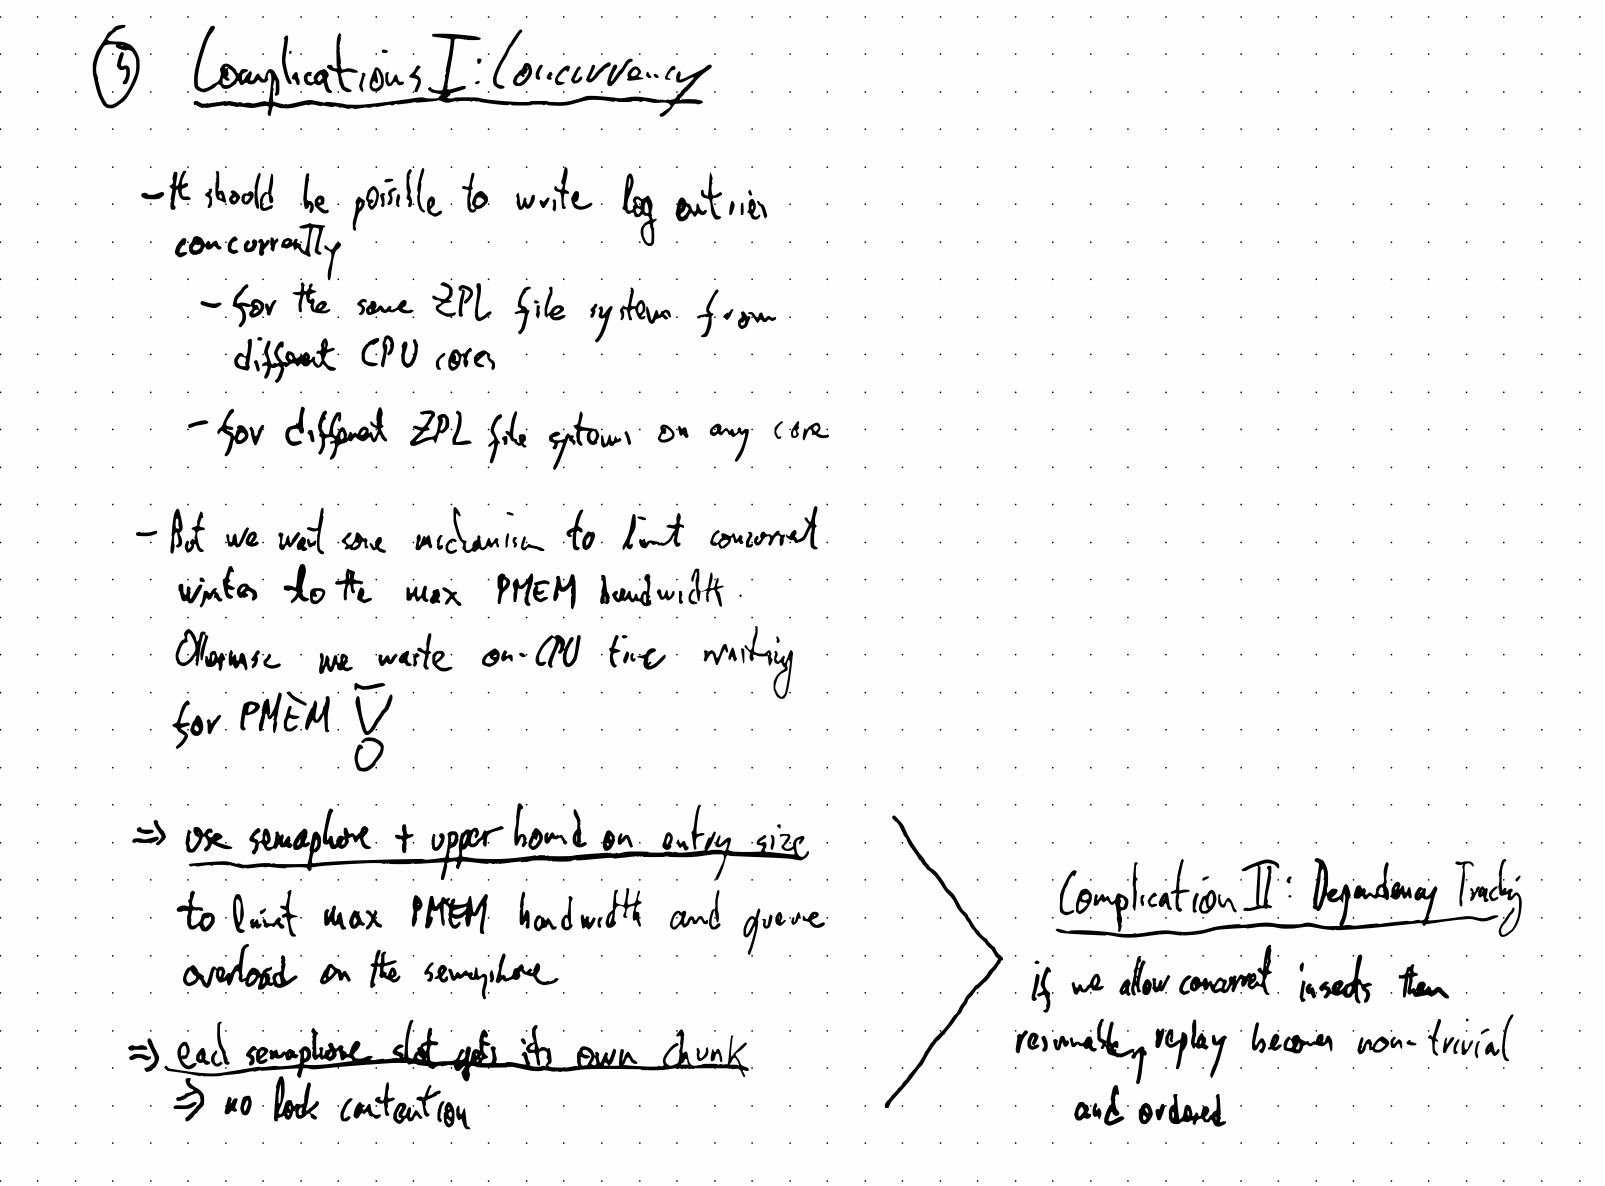 3 Complications I: Concurrency
- It should be possible to write log entries
concurrently
- for the same ZPL file system from
different CPU cores
- for different ZPL file systems on any core
- But we want some mechanism to limit concurrent
writes to the max PMEM bandwidth.
Otherwise we waste on-CPU time waiting
for PMEM !
⇒ use semaphore + upper bound on entry size
to limit max PMEM bandwidth and queue
overload on the semaphore
⇒ each semaphore slot gets its own chunk
⇒ no lock contention
Complication II: Dependency Tracking
if we allow concurrent inserts then
resumable, replay becomes non-trivial
and ordered